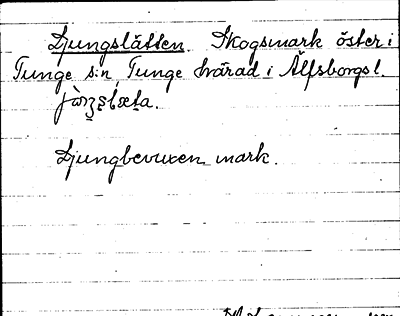 Ljungslätten. Skogsmark öster i
Tunge s:n Tunge härad i Älfsborgs l.
Ljungbevuxen mark.